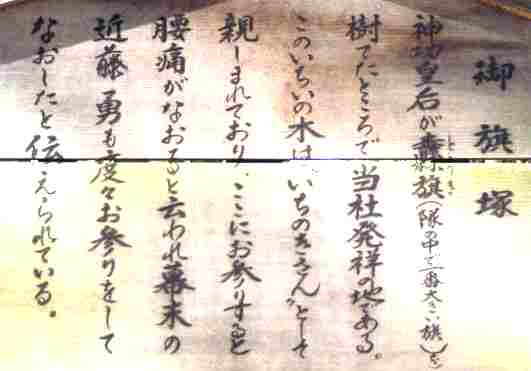 御旗塚
神功皇后が纛旗(隊の中で一番大きい旗)を
樹てたところで当社発祥の地である。
このいちいの木は"いちのきさん"として
親しまれており、ここにお参りすると
腰痛がなおると云われ幕末の
近藤勇も度々お参りをして
なおしたと伝えられている。